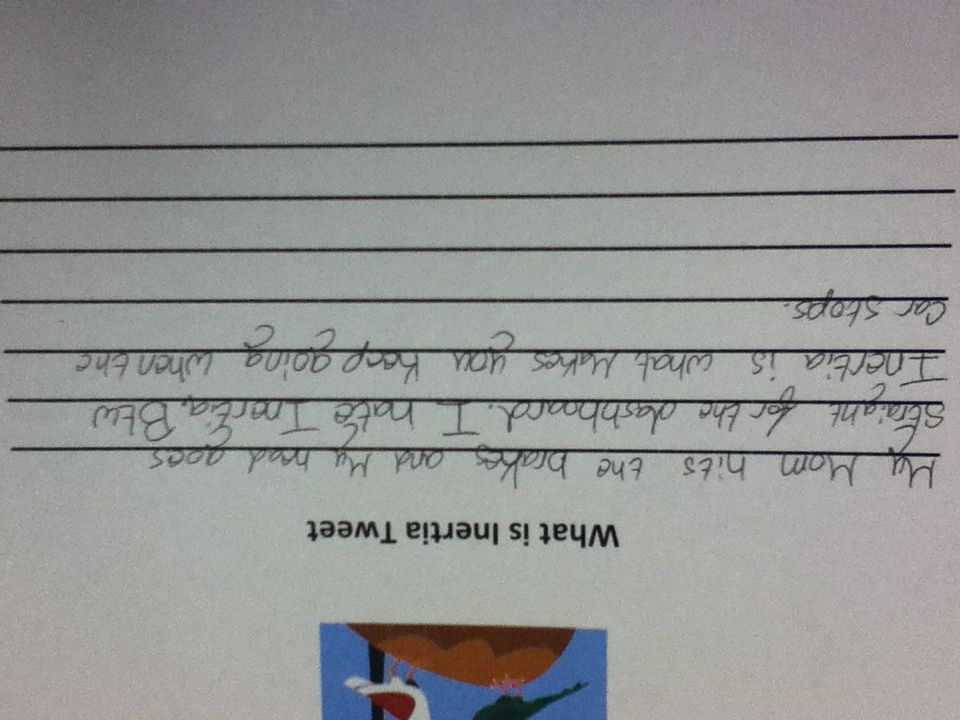 What is Inertia Tweet
My Mom hits the brakes and My head goes
straight for the dashboard. I hate Inertia. Btw
Inertia is what Makes you keep going when the
car stops.